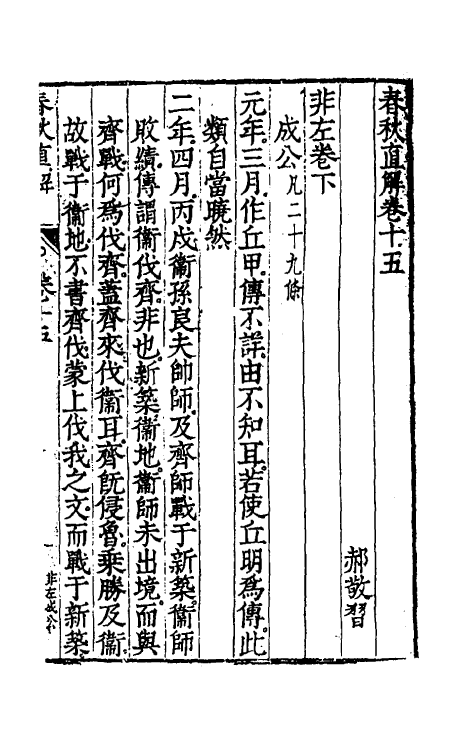 春秋直解卷十五
郝敬習
非左卷下
成公凡二十九條
元年三月作丘甲傳不詳由不知耳若使丘明爲傳此
類自當曉然
二年四月丙戌衞孫良夫帥師及齊師戰于新築衞師
敗績傳謂衞伐齊非也新築衞地衞師未出境而與
齊戰何爲伐齊蓋齊來伐衞耳齊旣侵魯乘勝及衞
故戰于衞地不書齊伐蒙上伐我之文而戰于新築
春秋直解
卷十五
一
非左成公